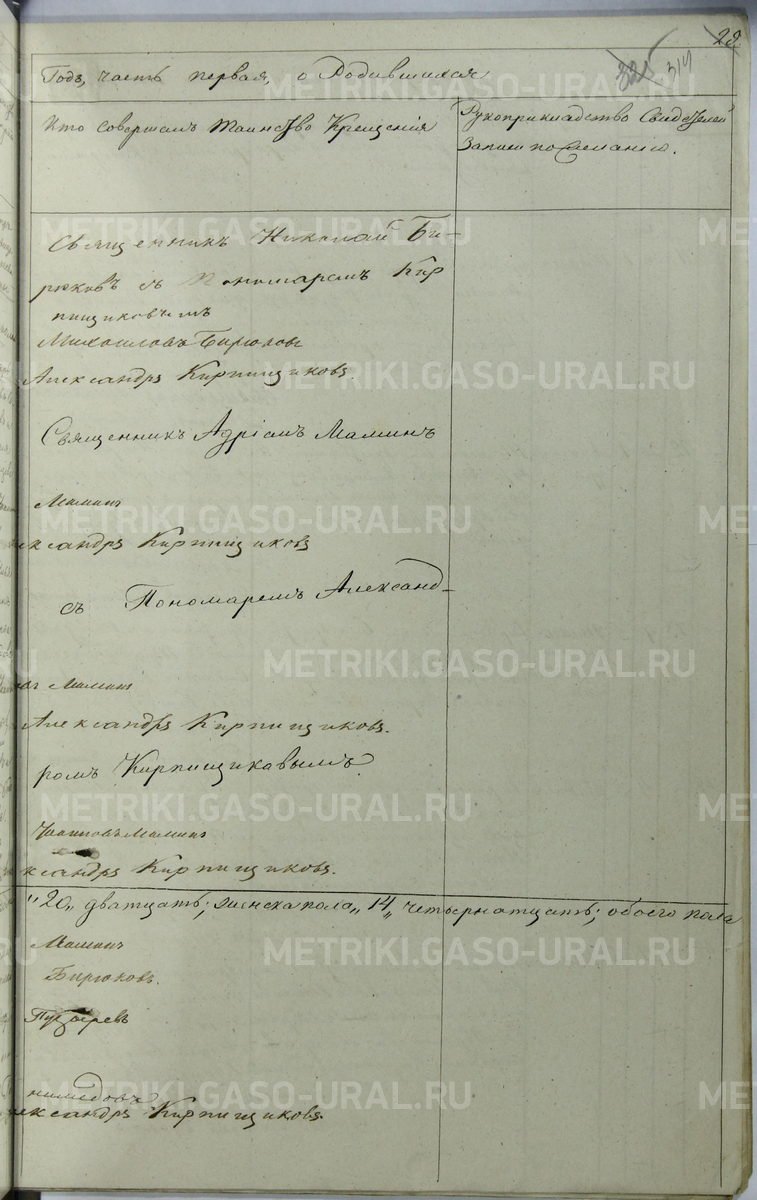 28.
325 314
Годъ, часть первая, о Родившихся
Кто совершалъ таинство Крещенія
Рукоприкладство Свидѣтелей
Записи по желанію.
Священникъ Николай Би-
рюковъ съ Пономаремъ Кир
пищиковымъ
Михаиловъ Бирюковъ
Александръ Кирпищиковъ.
Священникъ Адріанъ Маминъ
Маминъ
ександръ Кирпищиковъ
съ Пономаремъ Александ-
Маминъ
Александръ Кирпищиковъ.
ромъ Кирпищикавымъ
Маминъ
ксандръ Кирпищиковъ.
"20„ дватцать; женска пола „14„ четырнатцать; обоего пола
Маминъ
Бирюковъ.
Пузыревъ
ександръ Кирпищиковъ.
METRIKI.GASO-URAL.RU